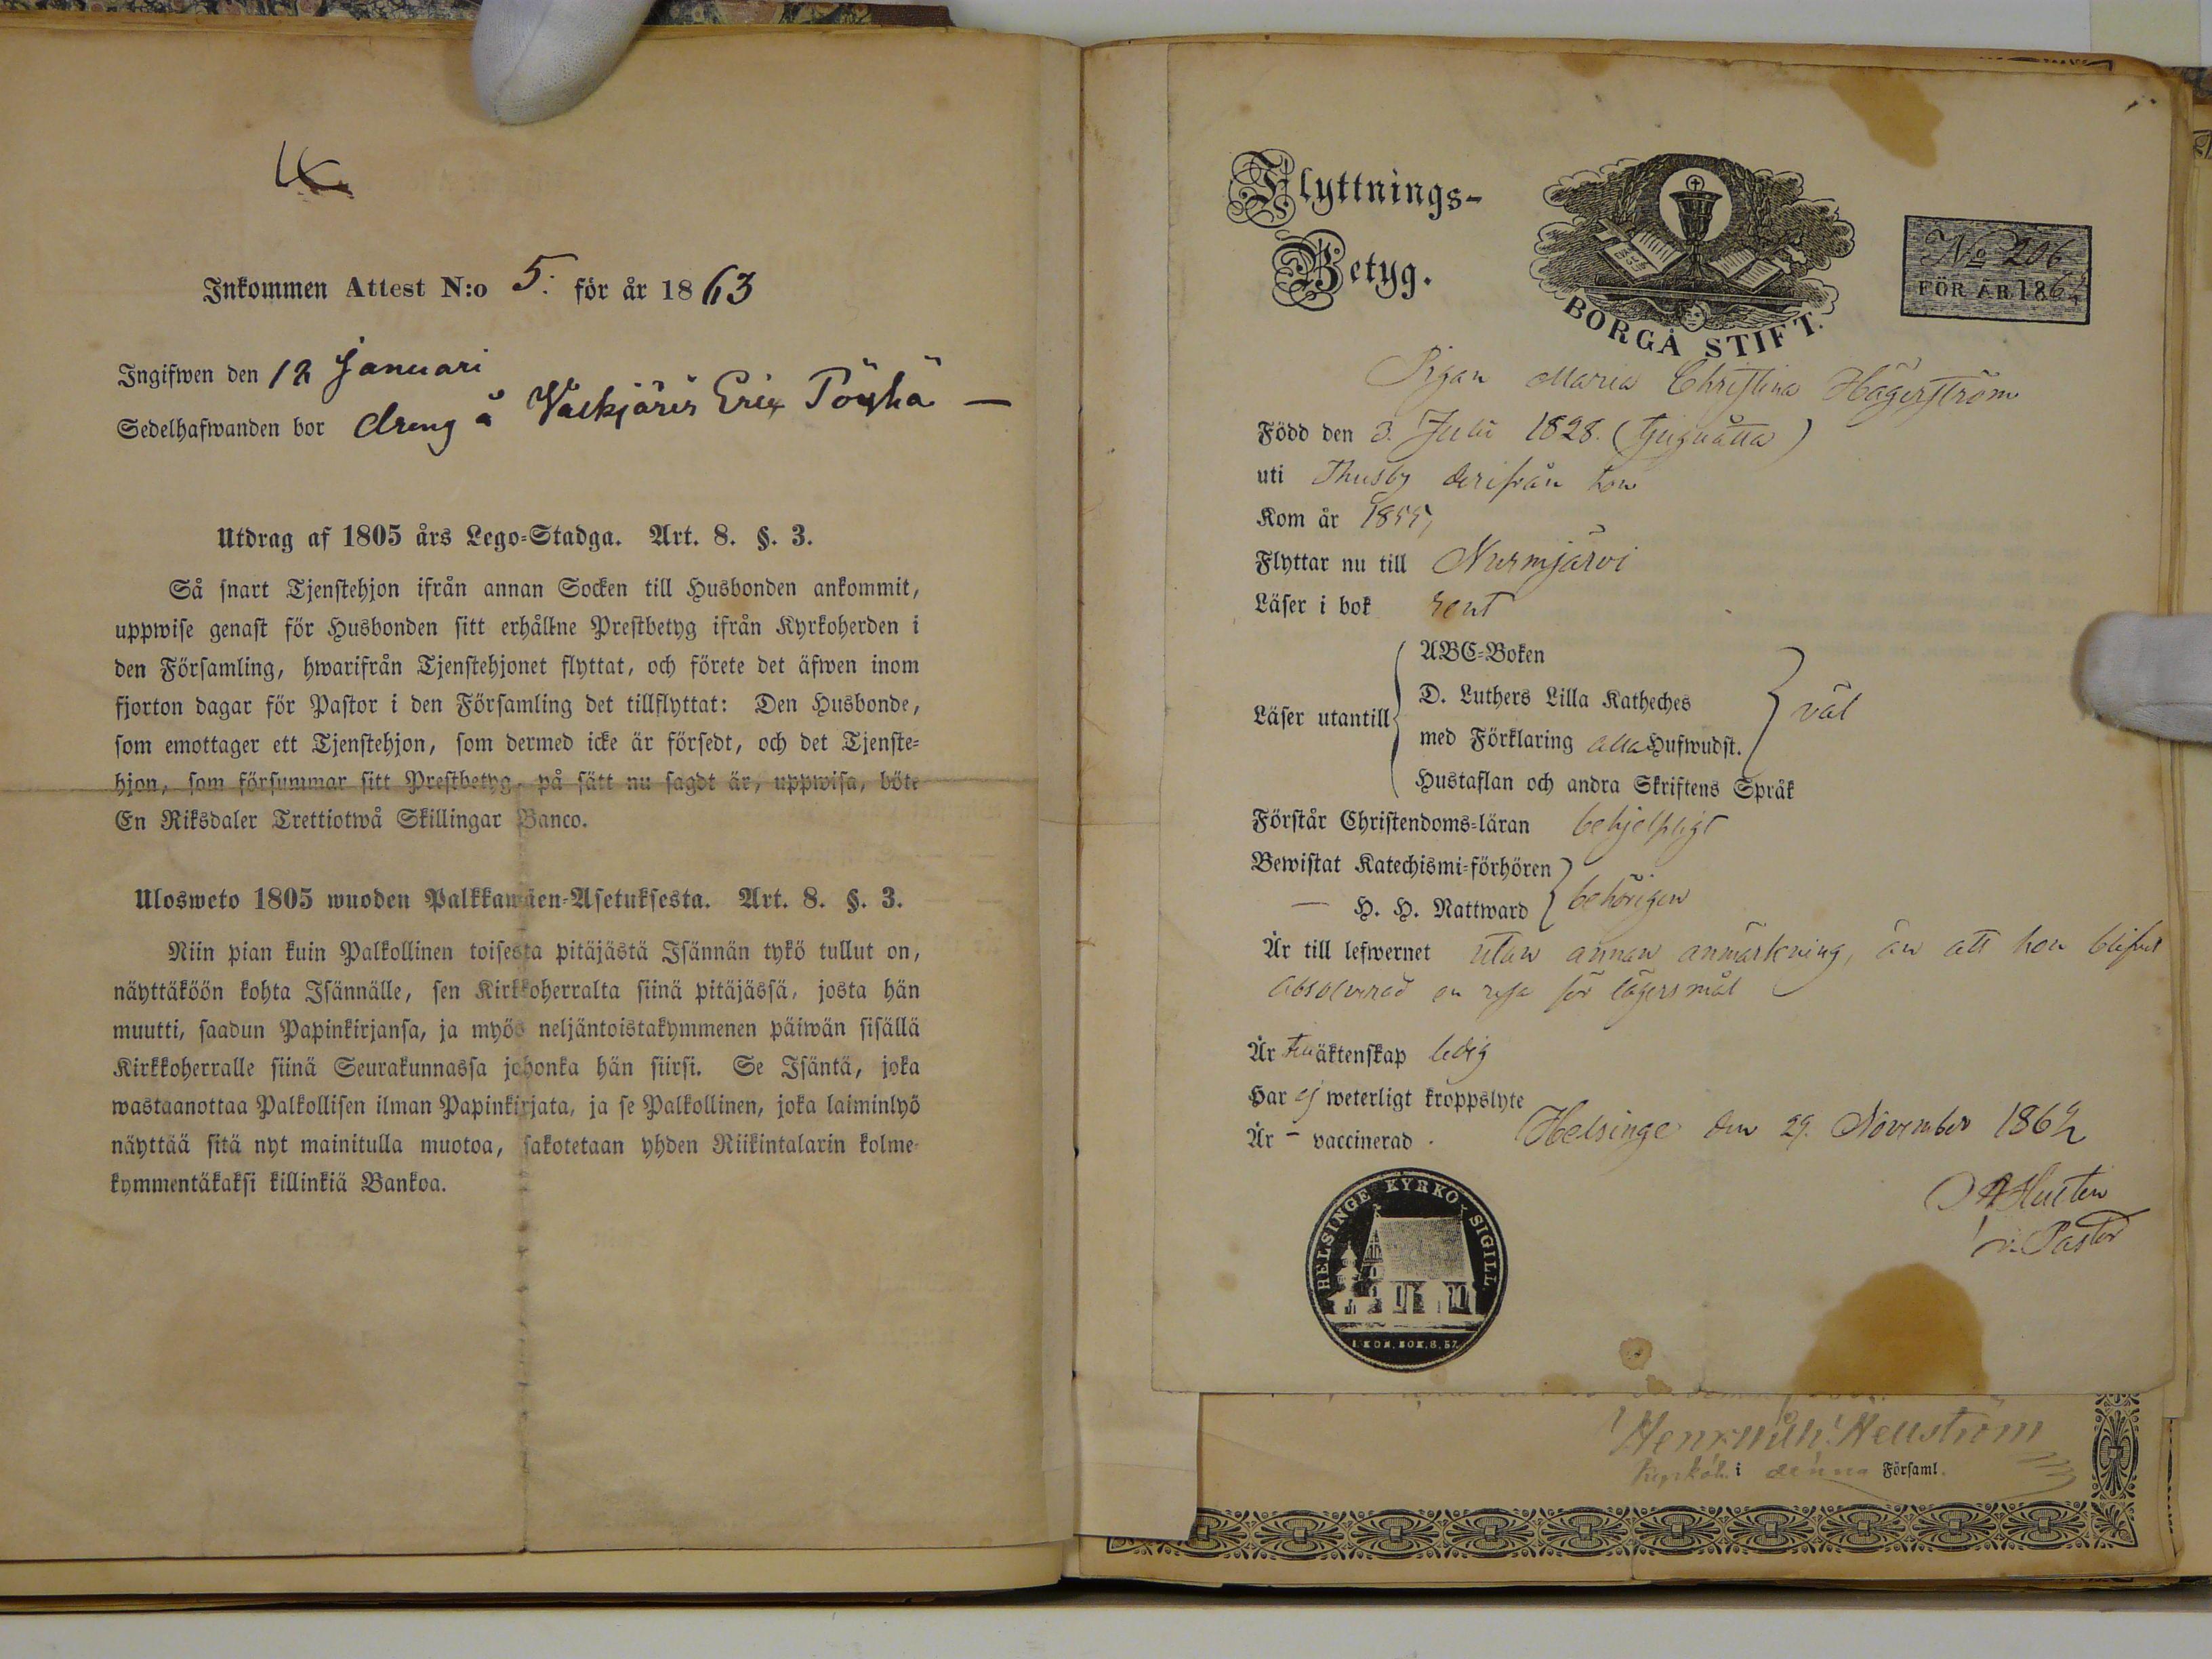 Inkommen Attest N:o 5. för år 1863
Ingifwen den 12 Januari
Sedelhafwanden bor dreng å Valkjärvi Erix Pöyhä —
Utdrag af 1805 års Lego-Stadga. Art. 8. §. 3.
Så snart Tjenstehjon ifrån annan Socken till Husbonden ankommit,
uppwise genast för Husbonden sitt erhållne Prestbetyg ifrån Kyrkoherden i
den Församling, hwarifrån Tjenstehjonet flyttat, och förete det äfwen inom
fjorton dagar för Pastor i den Församling det tillflyttat: Den Husbonde,
som emottager ett Tjenstehjon, som dermed icke är försedt, och det Tjenste-
hjon, som försummar sitt Prestbetyg, på sätt nu sagdt är, uppwisa, böte
En Riksdaler Trettiotwå Skillingar Banco.
Ulosweto 1805 wuoden Palkkawäen-Asetuksesta. Art. 8. §. 3.
Niin pian kuin Palkollinen toisesta pitäjästä Isännän tykö tullut on,
näyttäköön kohta Isännälle, sen Kirkkoherralta siinä pitäjässä, josta hän
muutti, saadun Papinkirjansa, ja myös neljäntoistakymmenen päiwän sisällä
Kirkkoherralle siinä Seurakunnassa johonka hän siirsi. Se Isäntä, joka
wastaanottaa Palkollisen ilman Papinkirjata, ja se Palkollinen, joka laiminlyö
näyttää sitä nyt mainitulla muotoa, sakotetaan yhden Riikintalarin kolme-
kymmentäkaksi killinkiä Bankoa.
Flyttnings-
Betyg.
BORGÅ STIFT.
No 206
FÖR ÅR 1862
Pigan Maria Christina Hägerström
Född den 3. Juli 1828. (tjuguåtta)
uti Thusby derifrån hon
Kom år 1855,
Flyttar nu till Nurmijärvi
Läser i bok rent
ABC-Boken
D. Luthers Lilla Katheches
Läser utantill väl
med Förklaring alla Hufwudst.
Hustaflan och andra Skriftens Språk
Förstår Christendoms-läran behjelpligt
Bewistat Katechismi-förhören
— H. H. Nattward behörigen
Är till lefwernet utan annan anmärkning, än att hon blifvit
absolverad en resa för lägersmål
Är till äktenskap ledig
Har ej weterligt kroppslyte
Är - vaccinerad. Helsinge den 29. November 1862
v. Pastor
HELSINGE KYRKO SIGILL
1. KON. BOK. 8, 57.
Hellström
Kyrkoh. i denna Församl.